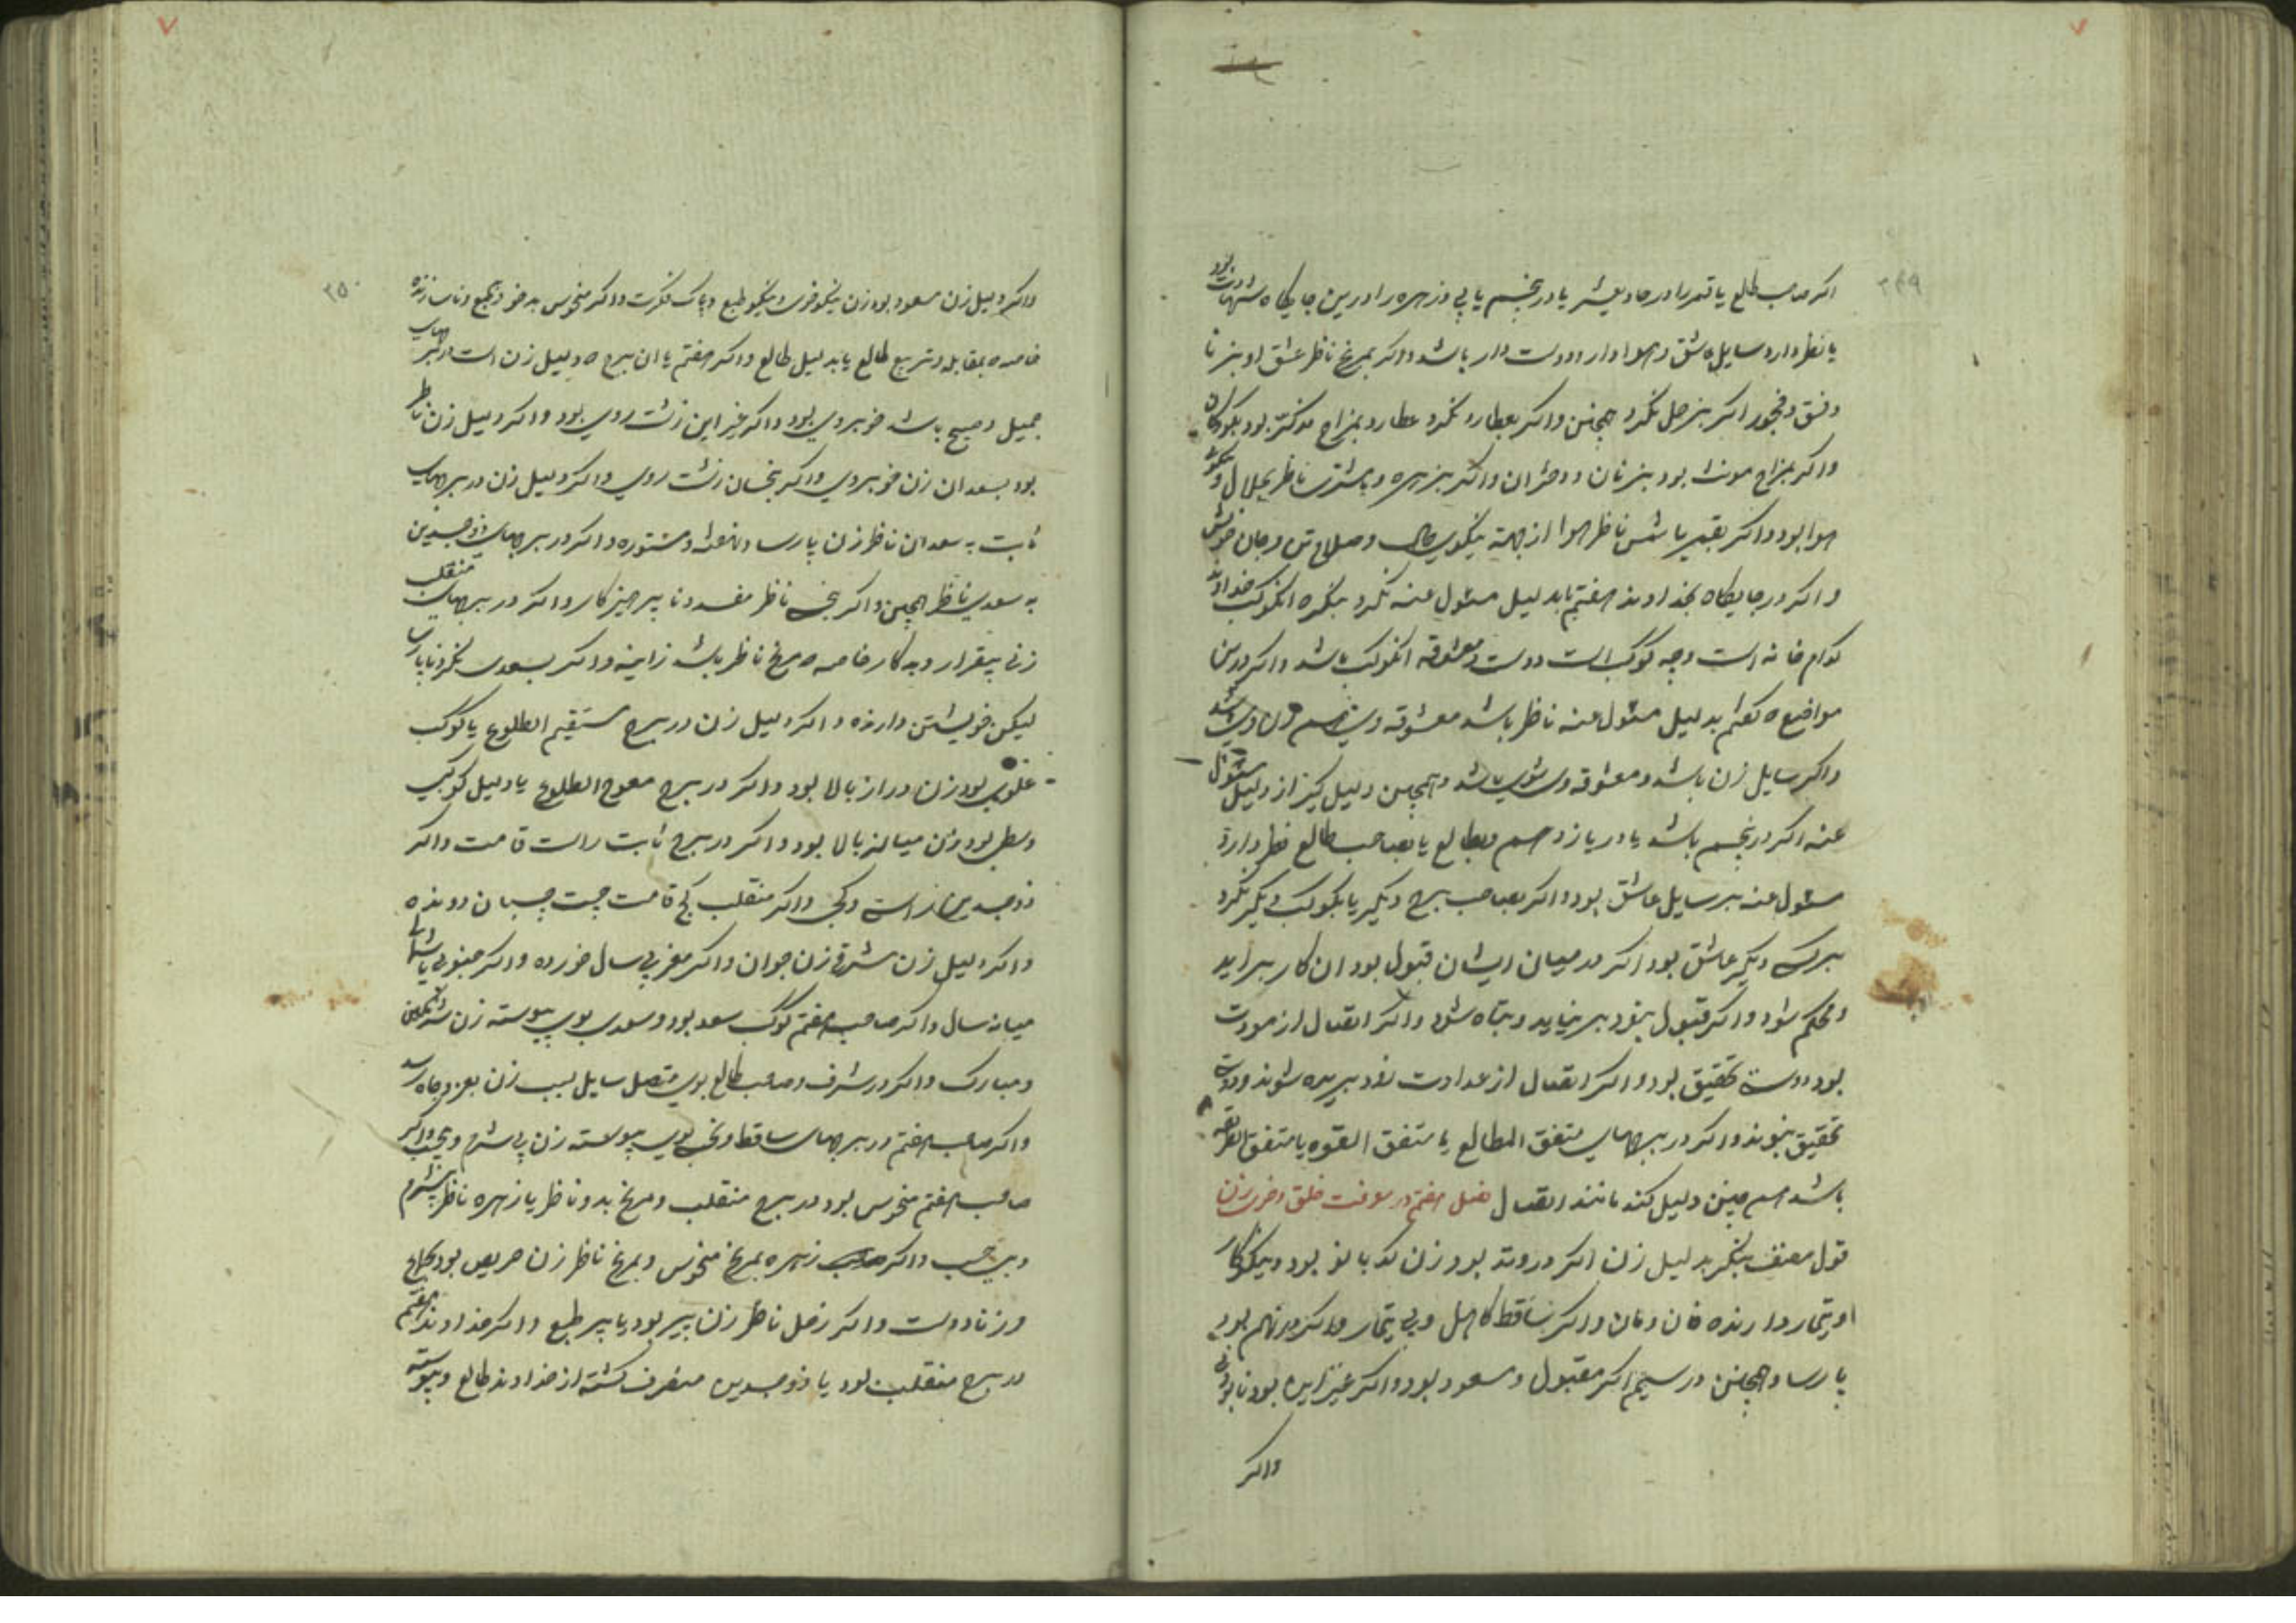 ۲۴۹
اکر صاحب طالع یا قمر را در حادیعشر یا در پنجم یابی و زهره را درین جایکاه شهادت بود
یا نظر دارد سایل عاشق و هوادار و دوست دار باشد و اکر بمریخ ناظر عشق او بزنا
و فسق و فجور اکر بزحل نکرد همچنین و اکر بعطارد نکرد عطارد بمزاج مذکر بود بکودکان
و اکر بمزاج مونث بود بزنان و دختران و اکر بزهره و بمشتری ناظر بحلال و نکوی
هوا بود و اکر بقمر یا شمس ناظر هوا از جهة نیکویی حال و صلاح تن و جان خویش
و اکر در جایکاه بخداوند هفتم یا بدلیل مسئول عنه نکرد بنکر ه انکوکب خداوند
کدام خانه است و چه کوکب است دوست و معشوقه انکوکب باشد و اکر درین
مواضع ه کفتم بدلیل مسئول عنه ناظر باشد معشوقه وی باشد
و اکر سایل زن باشد و معشوقه وی شوی باشد و همچنین دلیل کیر از دلیل مسئول
عنه اکر در پنجم باشد یا در یازدهم و بطالع یا بصاحب طالع نظر دارد
مسئول عنه بر سایل عاشق بود و اکر بصاحب برج دیکر یا بکوکب دیکر نکرد
بر کسی دیکر عاشق بود اکر در میان ایشان قبول بود ان کار براید
و محکم شود و اکر قبول نبود بر نیاید و تباه شود و اکر اتصال از مودت
بود دوستی تحقیق بود و اکر اتصال از عداوت زود بریده شوند و دوستی
تحقیق نبوند و اکر در برجهای متفق المطالع یا متفق القوه یا متفق الطریقه
باشد هم چنین دلیل کند مانند اتصال فصل هفتم در معرفت خلق و خوی زن
قول مصنف بنکر بدلیل زن اکر در وتد بود زن کدبانو بود و نیکوکار
و تیمار دارنده خان و مان و اکر ساقط کاهل و بی تیمار و اکر در نهم بود
پارسا و همچنین در سیم اکر مقبول و مسعود بود و اکر غیر این بود نابودنی
واکر
۲۵۰
و اکر دلیل زن مسعود بود زن نیکو خوی و نیکو طبع و پاک فکرت و اکر منحوس بد خو و بد طبع و ناسازنده
خاصه ه بمقابله و تربیع طالع یا بدلیل طالع و اکر هفتم یا ان برج ه دلیل زن است از برجهای
جمیل و صبیح باشد خوبروی بود و اکر غیر این زشت روی بود و اکر دلیل زن ناظر
بود بسعدان زن خوبروی و اکر بنحسان زشت روی و اکر دلیل زن در برجهای
ثابت به سعدان ناظر زن پارسا و مستوره و اکر در برجهای ذو جسدین
به سعدی ناظر همچنین و اکر بنحسی ناظر مفسد و ناپرهیزکار و اکر در برجهای منقلب
زنی بیقرار و بد کار خاصه ه مریخ ناظر باشد زانیه و اکر بسعدی نکرد ناپارسا
لیکن خویشتن دارنده و اکر دلیل زن در برج مستقیم الطلوع یا کوکب
علوی بود زن دراز بالا بود و اکر در برج معوج الطلوع یا دلیل کوکبی
سفلی بود زن میانه بالا بود و اکر در برج ثابت راست قامت و اکر
ذو جسدین راستی و کجی و اکر منقلب کج قامت چست چسبان دونده
و اکر دلیل زن مشرقی زن جوان و اکر مغربی سال خورده و اکر جنوبی یا شمالی
میانه سال و اکر صاحب هفتم کوکب سعد بود و سعدی بوی پیوسته زن شرمکین
و مبارک و اکر در شرف و صاحب طالع بوی متصل سایل بسبب زن بعز و جاه رسد
و اکر صاحب هفتم در برجهای ساقط و نحسی بوی پیوسته زن بی شرم و بی واکر
صاحب هفتم منحوس بود در برج منقلب و مریخ بدو ناظر یا زهره ناظر بی شرم
و بی حسب و اکر صاحب زهره بمریخ منحوس و بمریخ ناظر زن حریص بود بجماع
و زنا دوست و اکر زحل ناظر زن پیر بود یا پیر طبع و اکر خداوند هفتم
در برج منقلب بود یا ذو جسدین منصرف کشته از خداوند طالع و پیوسته